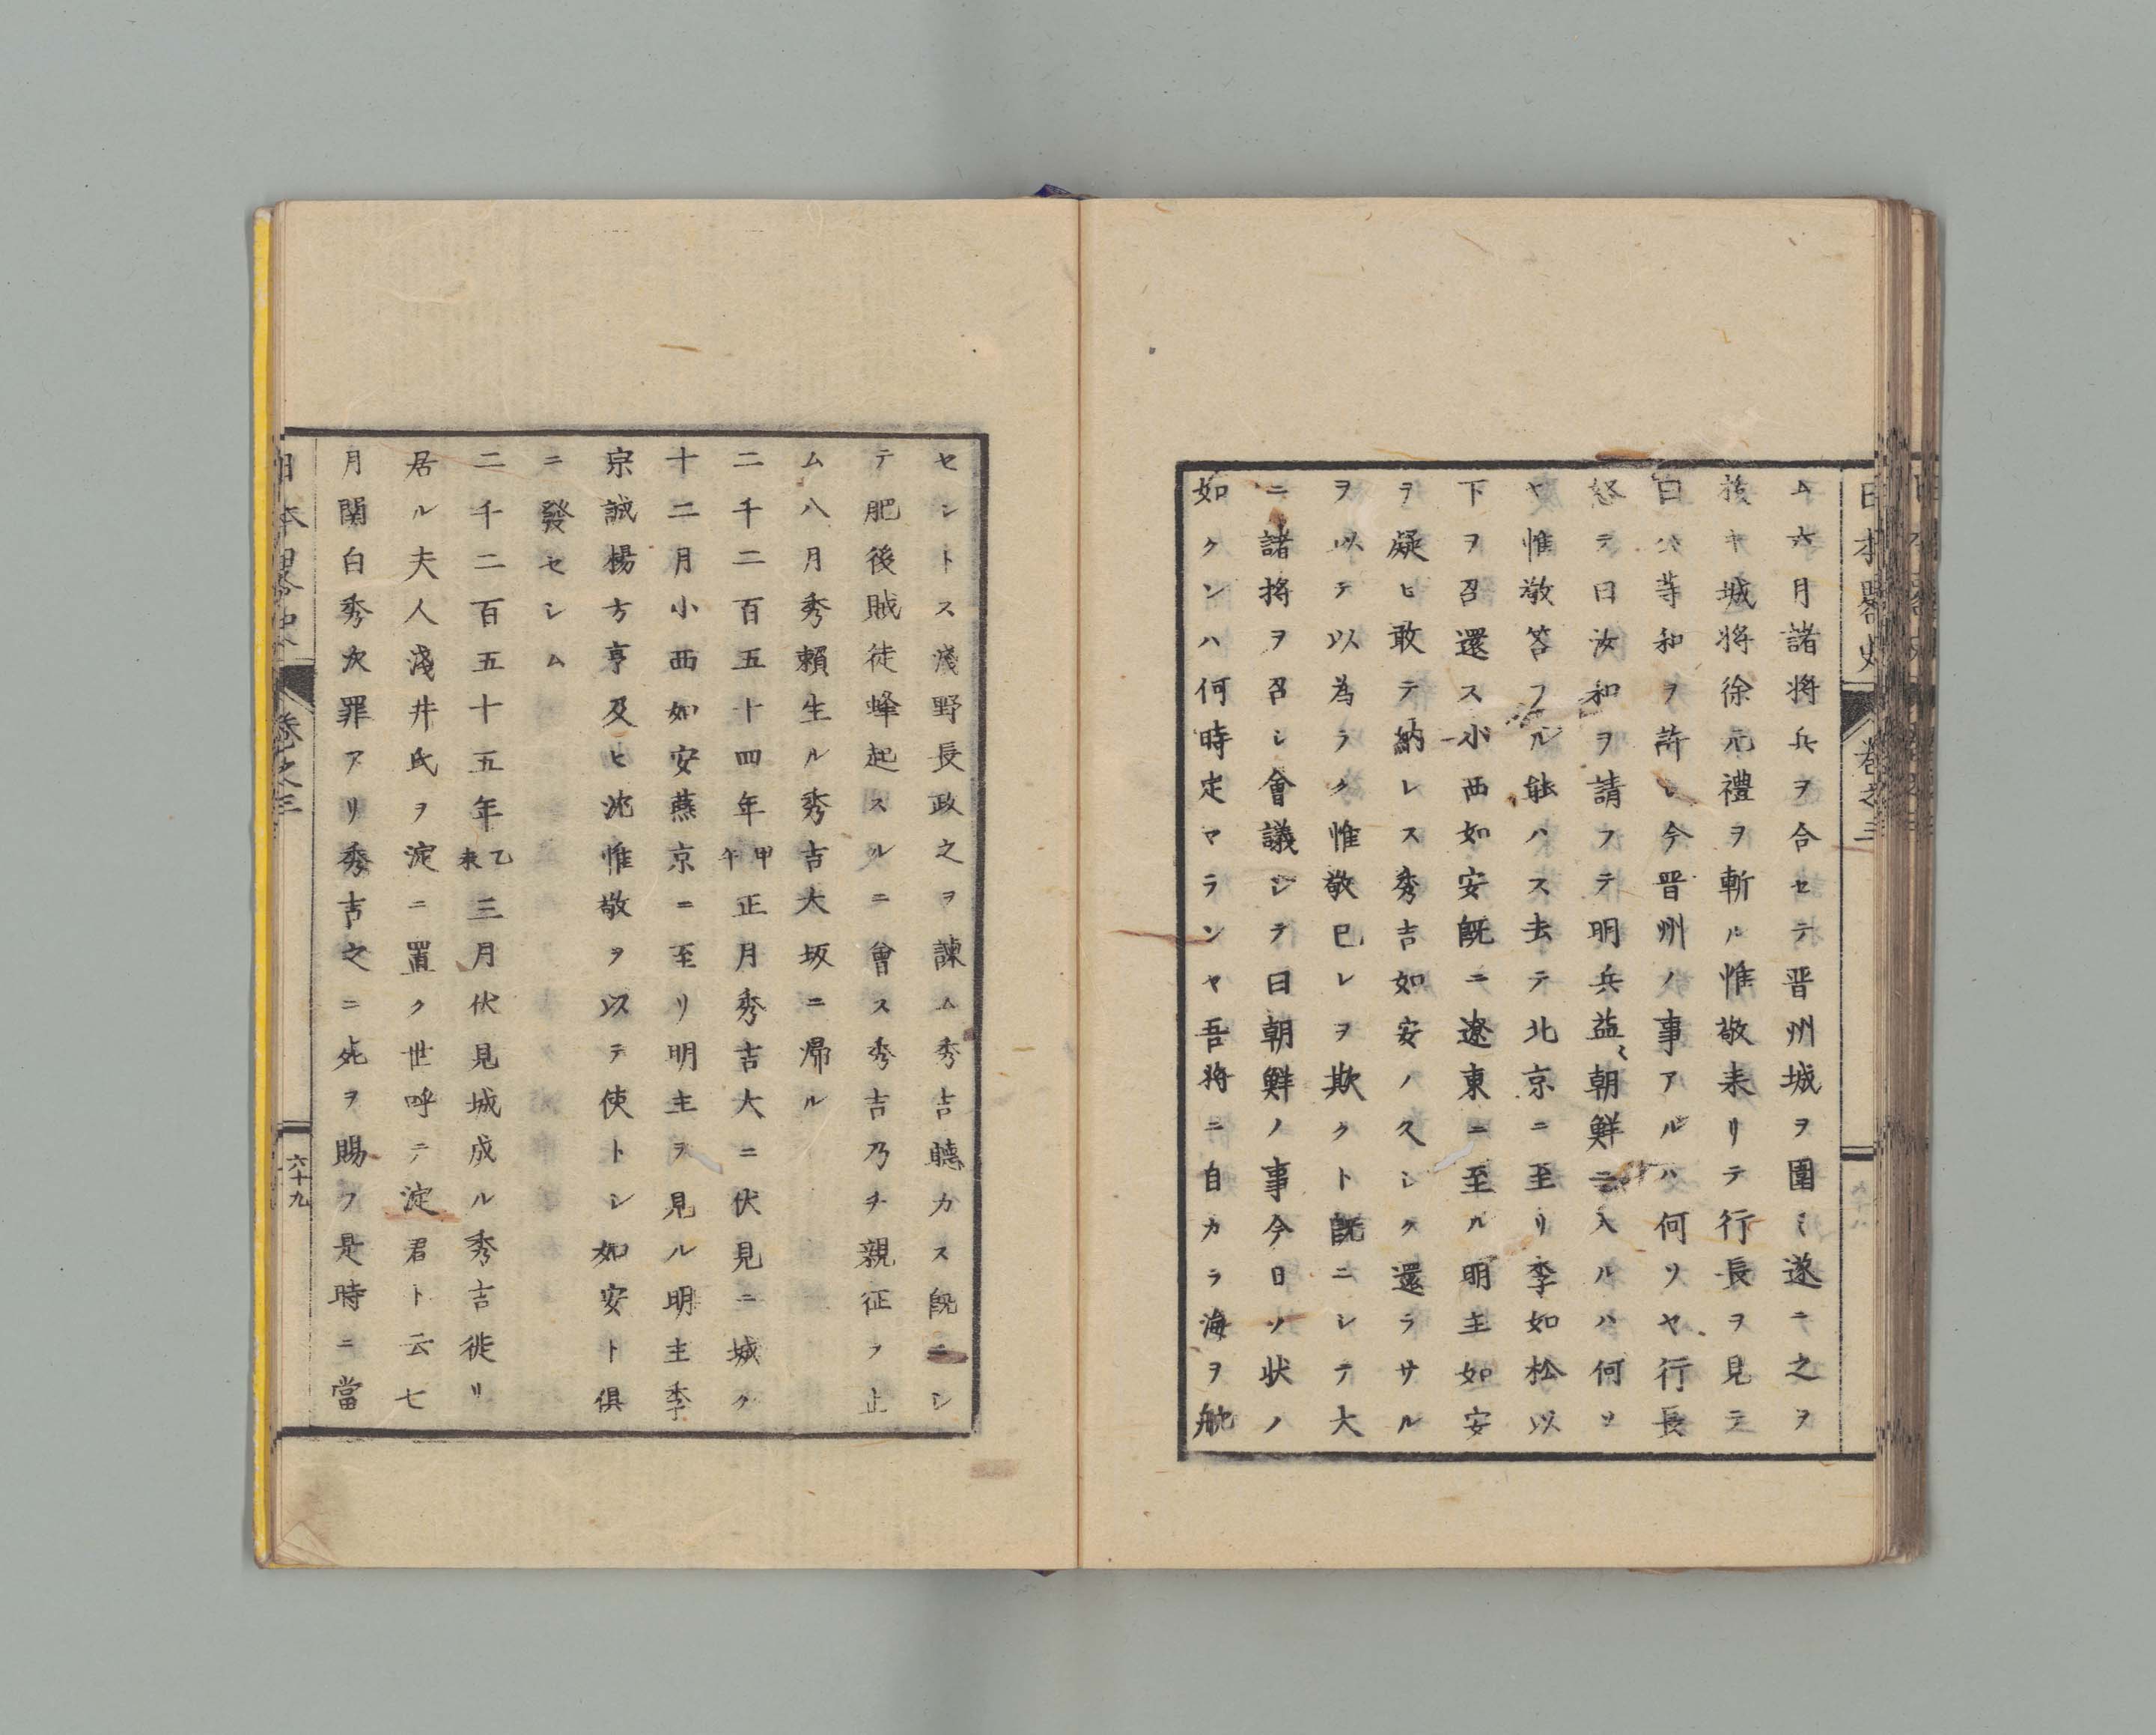 日本畧史 卷之三
ム六月諸將兵ヲ合セテ晋州城ヲ圍ミ遂ニ之ヲ
拔キ城将徐元禮ヲ斬ル惟敬来リテ行長ヲ見テ
曰公等和ヲ許シ今晋州ノ事アルハ何ソヤ行長
怒テ曰汝和ヲ請フテ明兵益〻朝鮮ニ入ルハ何ソ
ヤ惟敬答フル能ハス去テ北京ニ至リ李如松以
下ヲ召還ス小西如安既ニ遼東ニ至ル明主如安
ヲ疑ヒ敢テ納レス秀吉如安ノ久シク還ラサル
ヲ以テ以為ラク惟敬已レヲ欺クト既ニシテ大
ニ諸將ヲ召シ會議シテ曰朝鮮ノ事今日ノ状ノ
如クンハ何時定マランヤ吾将ニ自カラ海ヲ航
セントス淺野長政之ヲ諫ム秀吉聽カス既ニシ
テ肥後賊徒蜂起スルニ會ス秀吉乃チ親征ヲ止
ム八月秀頼生ル秀吉大坂ニ帰ル
二千二百五十四年甲午正月秀吉大ニ伏見ニ城ク
十二月小西如安燕京ニ至リ明主ヲ見ル明主李
宗誠楊方亨及ヒ沈惟敬ヲ以テ使トシ如安ト俱
ニ發セシム
二千二百五十五年乙未三月伏見城成ル秀吉徙リ
居ル夫人淺井氏ヲ淀ニ置ク世呼テ淀君ト云七
月関白秀次罪アリ秀吉之ニ死ヲ賜フ是時ニ當
日本畧史 卷之三 六十九